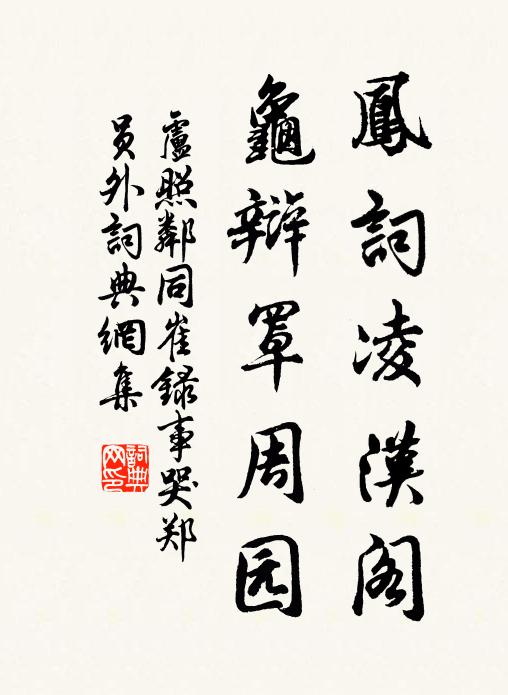 鳳詞凌漢阁
龜辯罩周园
盧照鄰同崔録事哭郑
员外詞典網集
詞典网印